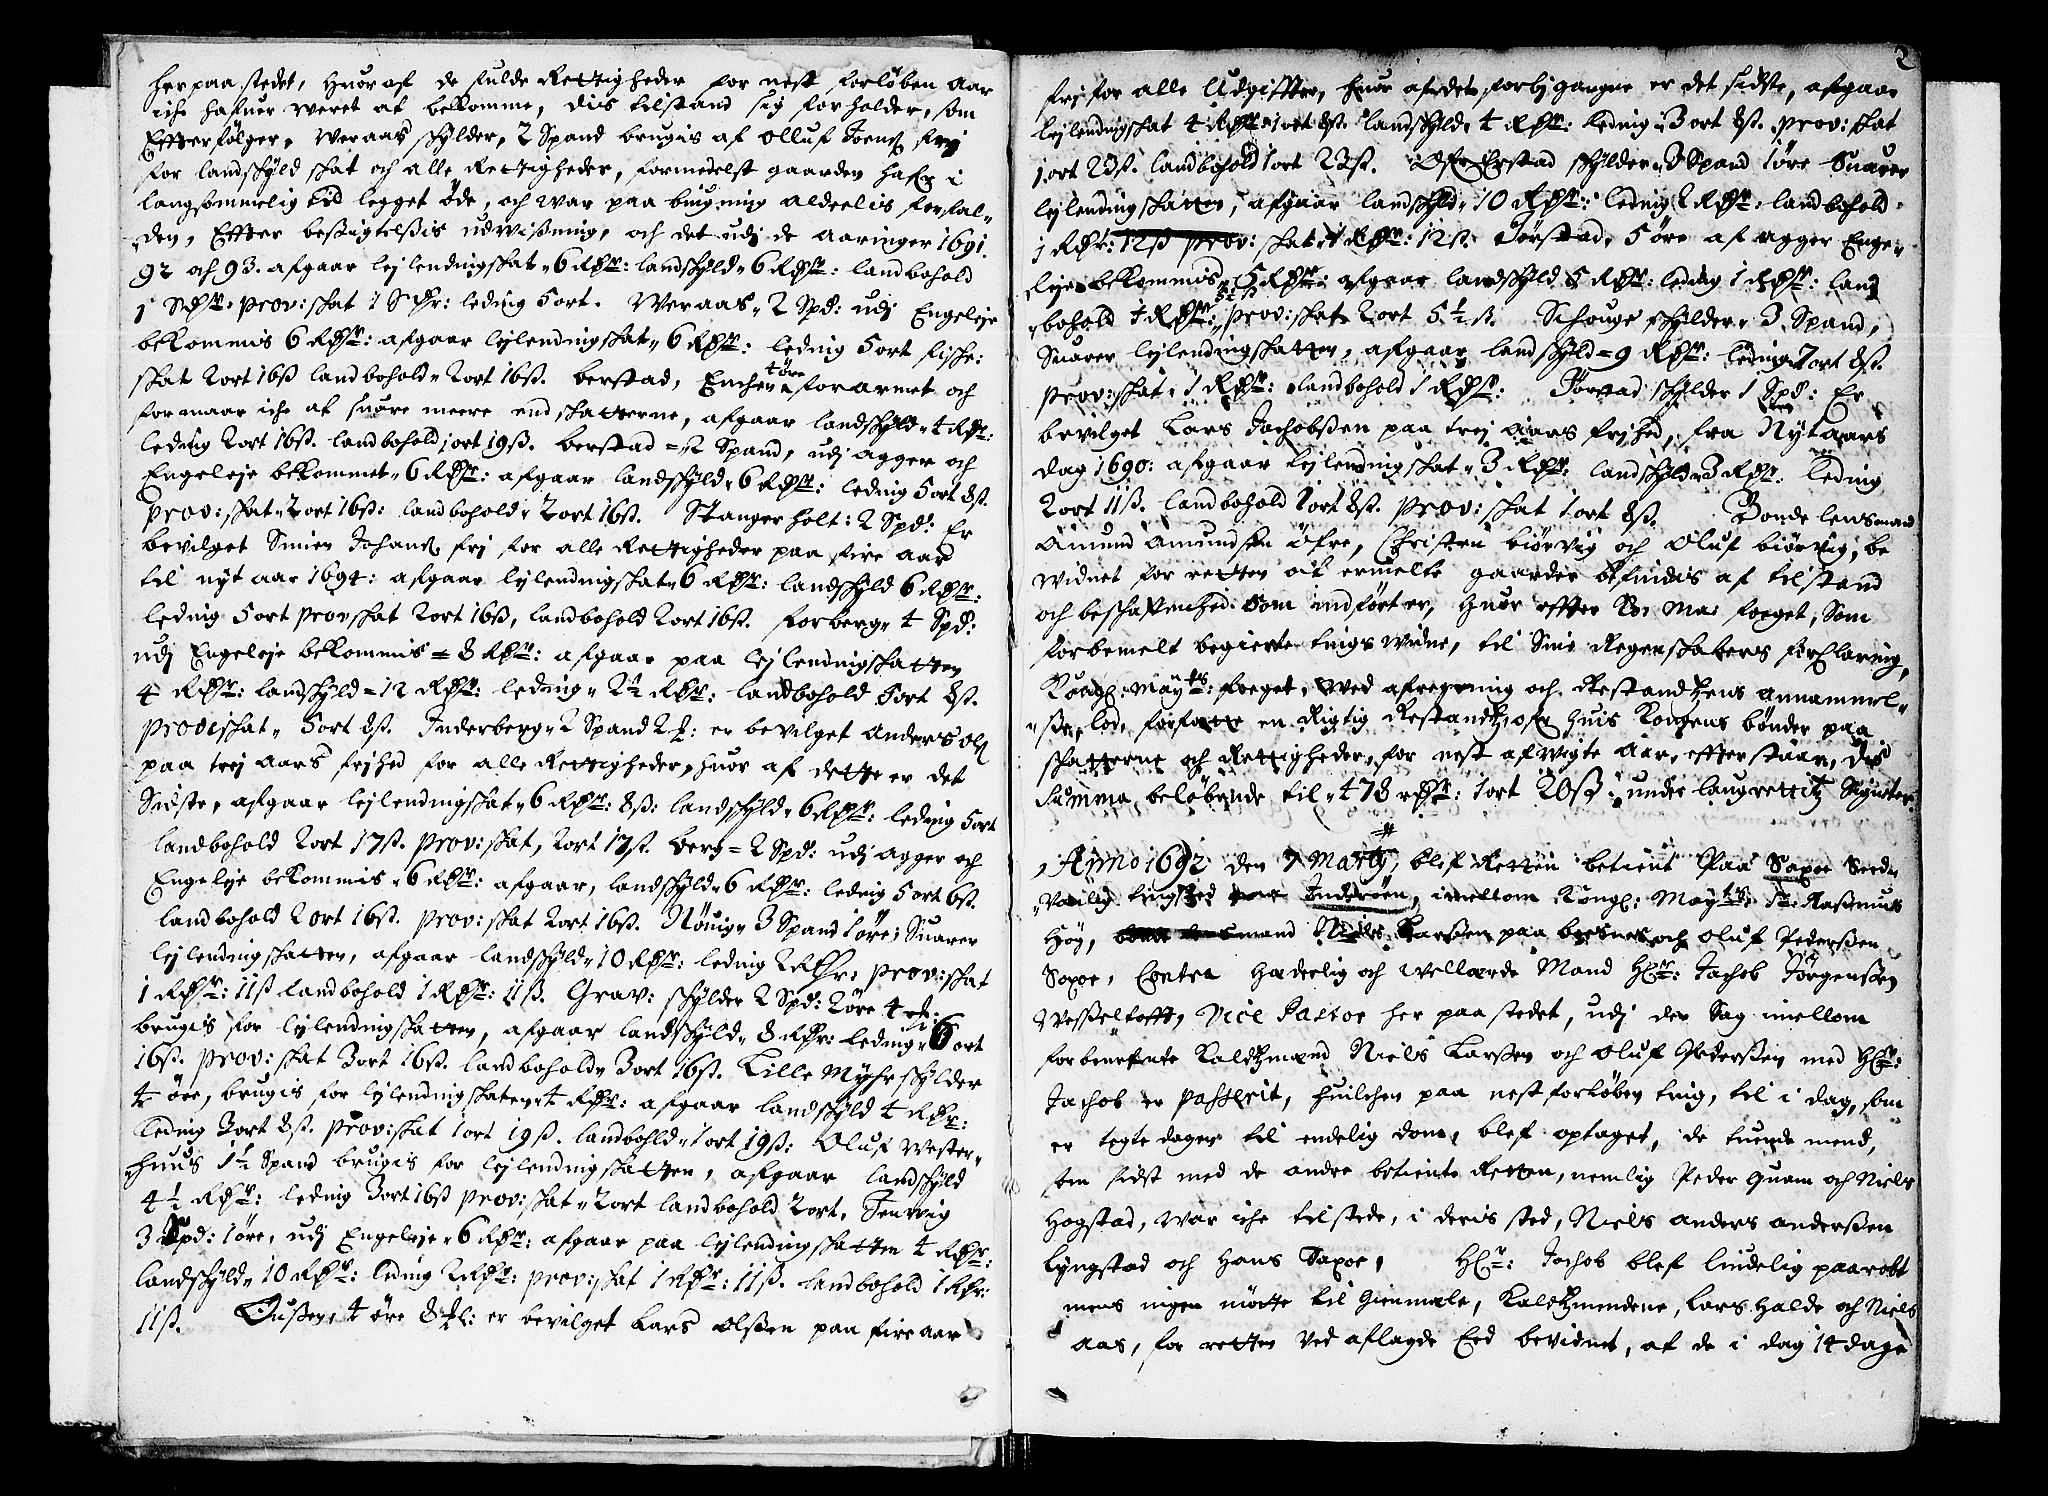 her paa stedet, huor af de fulde Rettigheder for nest forløben aar
iche hafuer weret at bekomme, dis tilstand sig forholder, som
Effterfølger, Weraas schylder, 2 Spand brugis af olluf Joens: frj
for landschyld schat och alle Rettigheder, formedelst gaarden hafr i
langsommelig tid legget øde, och war paa bugning aldeelis forfal„
„den, Effter besigtelsis udwisning, och det udj de aaringer 1691.
92 och 93. afgaar leylendingschat„ 6 Rdr: landschyld„ 6 Rdr: landbohold
1 Rdr: prov: schat 1 Rdr: leding 5 ort. Weraas„ 2 Spd: udj Engeleje
bekommis 6 Rdr: afgaar leylendingschat„ 6 Rdr: leding 5 ort
schat 2 ort 16ß landbohold„ 2 ort 16ß. berstad, Enchen 1 øre forarmet och
formaar iche at suare meere end schatterne, afgaar landschyld„ 4 Rdr:
leding 2 ort 16ß. landbohold 1 ort 19ß. berstad = 2 Spand, udj agger och
Engeleje bekommet„ 6 Rdr: afgaar landschyld„ 6 Rdr: leding 5 ort 8ß.
prov: schat„ 2 ort 16ß: landbohold„ 2 ort 16ß. Stangerholt: 2 Spd: Er
bevilget Simen Johans: frj for alle Rettigheder paa fire aar
til nyt aar 1694: afgaar leylendingschat„ 6 Rdr: landschyld 6 Rdr:
leding 5 ort provschat 2 ort 16ß, landbohold 2 ort 16ß. forberg„ 4 Spd:
udj Engeleje bekommis = 8 Rdr: afgaar paa leylendingschatten
4 Rdr: landschyld = 12 Rdr: leding„ 2½ Rdr: landbohold 5 ort 8ß.
provischat„ 5 ort 8ß. Inderberg„ 2 Spand 2 : er bevilget anders ols:
paa trej aars frjhed for alle Rettigheder, huor af dette er det
Sidste, afgaar leylendingschat„ 6 Rdr: 8ß: landschyld„ 6 Rdr: leding 5 ort
landbohold 2 ort 17ß. prov: schat, 2 ort 17ß. berg = 2 Spd: udj agger och
Engeleje bekommis„ 6 Rdr: afgaar, landschyld„ 6 Rdr: leding 5 ort 6ß.
landbohold 2 ort 16ß. prov: schat 2 ort 16ß. Nøuig„ 3 Spand 1 øre; Suarer
leylendingschatten, afgaar landschyld„ 10 Rdr: leding 2 Rdr: prov: schat
1 Rdr: 11ß landbohold 1 Rdr: 11ß. Grav: schylder 2 Spd: 2 øre 4
brugis for leylendingschatten, afgaar landschyld„ 8 Rdr: leding„ 6 ort
16ß. prov: schat 3 ort 16ß. landbohold„ 3 ort 16ß. Lille Myhr schylder
4 øre, brugis for leylendingschaten„ 4 Rdr: afgaar landschyld 4 Rdr:
leding 3 ort 8ß. prov: schat 1 ort 19ß. landbohld„ 1 ort 19ß: Oluf Wester„
„huus 1½ Spand brugis for leylendingschatten, afgaar landschyld
4½ Rdr: leding 3 ort 16ß prov: schat„ 2 ort landbohold 2 ort.
3 Spd: 1 øre, udj Engeleje„ 6 Rdr: afgaar paa leylendingschatten 4 Rdr:
landschyld„ 10 Rdr: leding 2 Rdr: prov: schat 1 Rdr: 11ß. landbohold 1 Rdr:
11ß. 4 øre 8 : er bevilget Lars olsen paa fire aar
2
frj for alle Udgiffter, huor af det forbj gangne er det sidste, afgaar
leylendingschat 4 Rdr 1 ort 8ß. landschyld„ 4 Rdr: leding„ 3 ort 8ß. prov: schat
1 ort 23ß. landbohold 1 ort 23ß. schylder„ 3 Spand 1 øre Suarer
leylendingschatten, afgaar landschyld„ 10 Rdr: leding 2 Rdr: landbohold
1 Rdr: 12ß prov: schat„ 1 Rdr: 12ß. Børstad, 5 øre af agger Enge„
„leje bekommis„ 5 Rdr: afgaar landschyld 5 Rdr: leding 1 Rdr: land
„bohold prov: schat„ 2 ort 5½ß. Schouge schylder„ 3 Spand,
Suarer leylendingschatten, afgaar landschyld = 9 Rdr: leding 7 ort 8ß.
prov: schat„ 1 Rdr: landbohold 1 Rdr: schylder 1 Spd: Er
bevilget Lars Jachobsen paa trej aars frjhed, fra Nytaars
dag 1690: afgaar leylendingschat„ 3 Rdr: landschyld„ 3 Rdr: leding
2 ort 11ß. landbohold 1 ort 8ß. prov: schat 1 ort 8ß. Bonde lensmand
Amund Amundsen Øfre, Christen biørvig och Oluf biørvig, be
widnet for retten at ermelte gaarder befindis af tilstand
och beschaffenhed som indført er, huor effter foeget, Som
forbemelt begierte tings widne, til Sine Regenschabers forclaring,
Kongl: Mayts: foeget, wed afregning och Restandzens annammel„
„se, lod, forfatte en Rigtig Restandz, ofr huis Kongens bønder paa
schatterne och Rettigheder, for nest afwigte Aar, effter staar, dis
Summa beløbende til„ 478 rdr: 1 ort 20ß: under laugrettitz Signeter.
Anno 1692 den 7 Marty, blef Retten betient paa Saxoe Sed„
„vanlig tingsted Inderøen, imellom Kongl: Mayts: Rasmus
Høy, mand Niels Larsen paa och Oluf Pedersen
Saxoe, Contra Hæderlig och wellærde Mand Hr: Jachob Jørgensen
Wesseltofft, Vice Pastor her paa stedet, udj den Sag imellom
forbenefnte Kaldzmænd Niels Larsen och Oluf Pedersen med Hr:
Jachob er passerit, huilchen paa nest forløben ting, til i dag, som
er tegte dagen til endelig dom, blef optaget, de tuende mend,
som sidst med de andre betiente Retten, nemlig Peder Quam och Niels
Hogstad, war iche tilstede, i deris sted, Niels anders andersen
Lyngstad och Hans Saxoe, Hr: Jachob blef lindelig paaraabt
mens ingen møtte til Gienmæle, Kaldzmendene, Lars Halde och Niels
Aas, for retten ved aflagde Eed bevidnet, at de i dag 14 dage